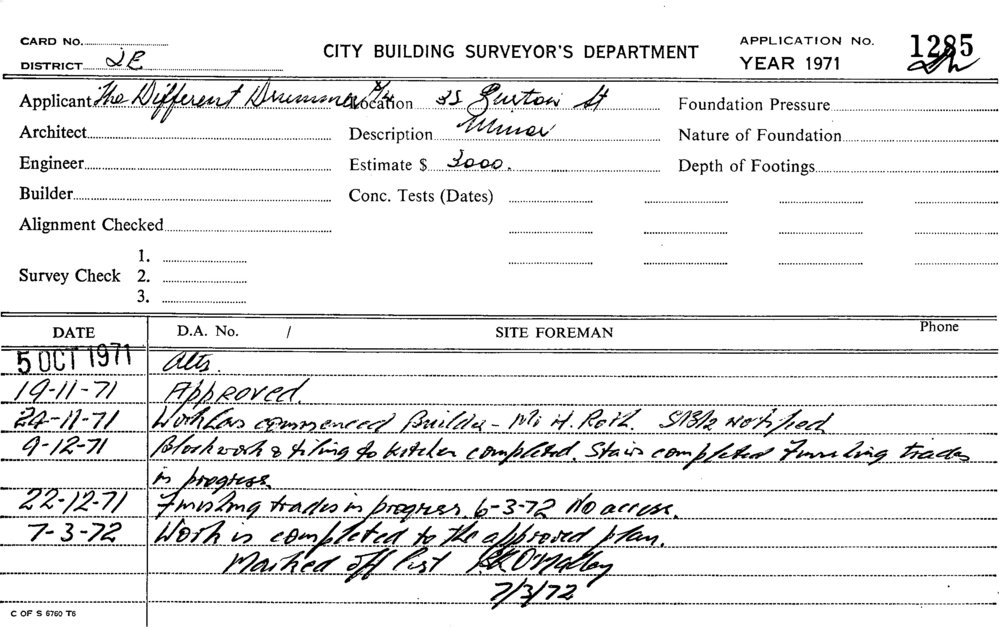 CARD No.
DISTRICT 2E
CITY BUILDING SURVEYOR'S DEPARTMENT
APPLICATION No. 1285
YEAR 1971
Applicant The Different Drummer P/L Location 35 St Foundation Pressure
Architect Description Minor Nature of Foundation
Engineer Estimate $ 3000. Depth of Footings
Builder Conc. Tests (Dates)
Alignment Checked
1.
Survey Check 2.
3.
DATE D.A. No. / SITE FOREMAN Phone
5 OCT 1971 Alts.
19-11-71 Approved.
24-11-71 Work has commenced Builder - Mr H. Roth. notified
9-12-71 Blockwork & tiling to kitchen completed. Stairs completed Finishing trades
in progress
22-12-71 Finishing trades in progress. 6-3-72 No access.
7-3-72 Work is completed to the approved plan.
Marked off list O'Malley
7/3/72
C OF S 6760 T6